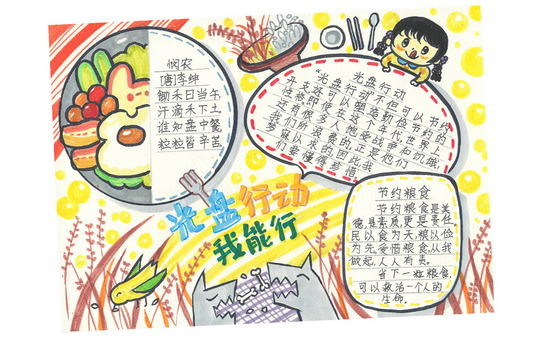 悯农
唐李绅
锄禾日当午
汗滴禾下土
谁知盘中餐
粒粒皆辛苦
光盘行动
"光盘行动"不但可以节约
开支,还可以塑造勤俭节约的人
性格。即使在这个年代世界上
还有很多人饱受战争和饥饿,
我们所浪费的正是他们
梦寐以求的因此我
们要懂得珍惜。
光盘行动
我能行
节约粮食
节约粮食是美
德,是素质,更是责任,
民以食为天,粮以俭
为先,爱惜粮食,从我
做起,人人有责。
省下一粒粮食,
可以救活一个人的
生命.